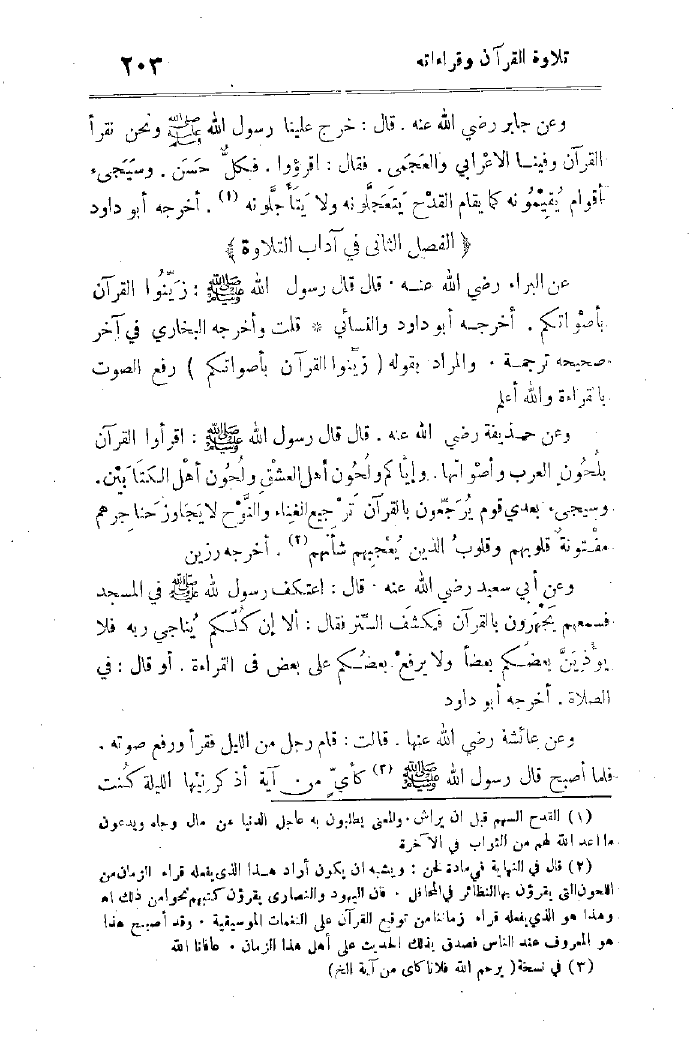 تلاوة القرآن وقراءاته
٢٠٣
وعن جابر رضي الله عنه . قال : خرج علينا رسول الله ﷺ ونحن نقرأ
القرآن وفينـا الاعْرابي والعَجَمى . فقال : اقرؤوا . فكلٌّ حَسَن . وسَيَجىء
أقوام يُقيْمُونه كما يقام القدْح يَتَعَجلُونه ولا يَتَأَجلُونه (١) . أخرجه أبو داود
﴿ الفصل الثانى في آداب التلاوة ﴾
عن البراء رضي الله عنـه . قال قال رسول الله ﷺ : زَيِّنُوا القرآن
بأصْواتكم . أخرجـه أبو داود والنسائي * قلت وأخرجه البخاري في آخر
صحيحه ترجمـة . والمراد بقوله ( زيِّنوا القرآن بأصواتكم ) رفع الصوت
بالقراءة والله أعلم
وعن حـذيفة رضي الله عنه . قال قال رسول الله ﷺ : اقرأوا القرآن
بلُحُون العرب وأصْواتها . وإيَّاكم ولُحُون أهل العشْق ولُحُون أهْل الكتابَيْن .
وسيجىء بعدي قوم يُرَجّعون بالقرآن تَرْجيع الغناء والنَّوْح لا يَجَاوز حَناجرهم
مفْـتونةٌ قلوبهم وقلوبُ الذين يُعْجبهم شأنهم (٢) . أخرجه رزين
وعن أبي سعيد رضي الله عنه . قال : اعتكف رسول لله ﷺ في المسجد
فسمعهم يَجْهَرون بالقرآن فيكشف السّتر فقال : ألا إن كُلّـكم يُناجي ربه فلا
يؤذيَنَّ بعضـكم بعضاً ولا يرفعْ بعضُـكم على بعض فى القراءة . أو قال : في
الصلاة . أخرجه أبو داود
وعن عائشة رضي الله عنها . قالت : قام رجل من الليل فقرأ ورفع صوته .
فلما أصبح قال رسول الله ﷺ (٣) كأيّ من آية أذكرنيها الليلة كُنت
(١) القدح السهم قبل ان يراش . والمعنى يطلبون به عاجل الدنيا من مال وجاه ويدعون
ما اعد الله لهم من الثواب في الآخرة
(٢) قال في النهاية في مادة لحن : ويشبه ان يكون أراد هـذا الذي يفعله قراء الزمان من
اللحون التي يقرؤن بها النظائر في المحافل . فان اليهود والنصارى يقرؤن كتبهم نحوا من ذلك اه
وهذا هو الذي يفعله قراء زماننا من توقيع القرآن على النغمات الموسيقية . وقد أصبح هذا
هو المعروف عند الناس فصدق بذلك الحديث على أهل هذا الزمان . عافانا الله
(٣) في نسخة ( يرحم الله فلانا كاى من آية الخ )